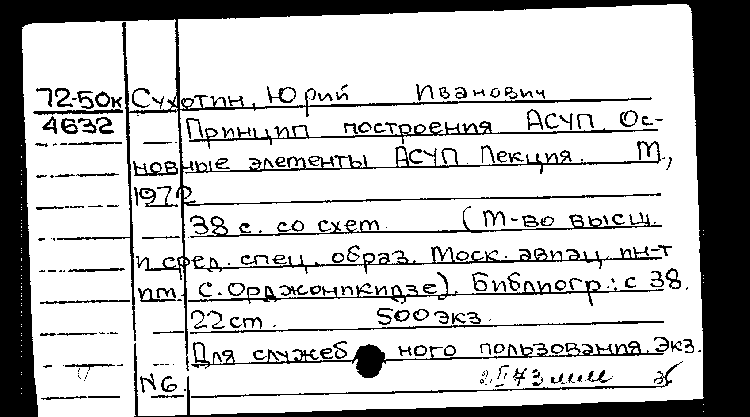 72-50к Сухотин, Юрий Иванович
4632 Принцип построения АСУП. Ос-
новные элементы АСУП Лекция. М.,
1972
38 с. со схем. (М-во высш.
и сред. спец. образ. Моск. авиац. ин-т
им. С. Орджоникидзе). Библиогр.: с 38.
22 см. 500 экз.
Для служебного пользования. Экз.
N6.